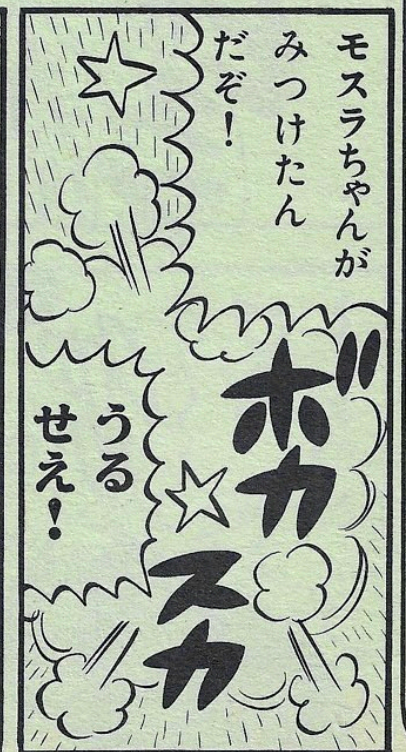 モスラちゃんが
みつけたん
だぞ！
ボカ
スカ
うる
せえ！